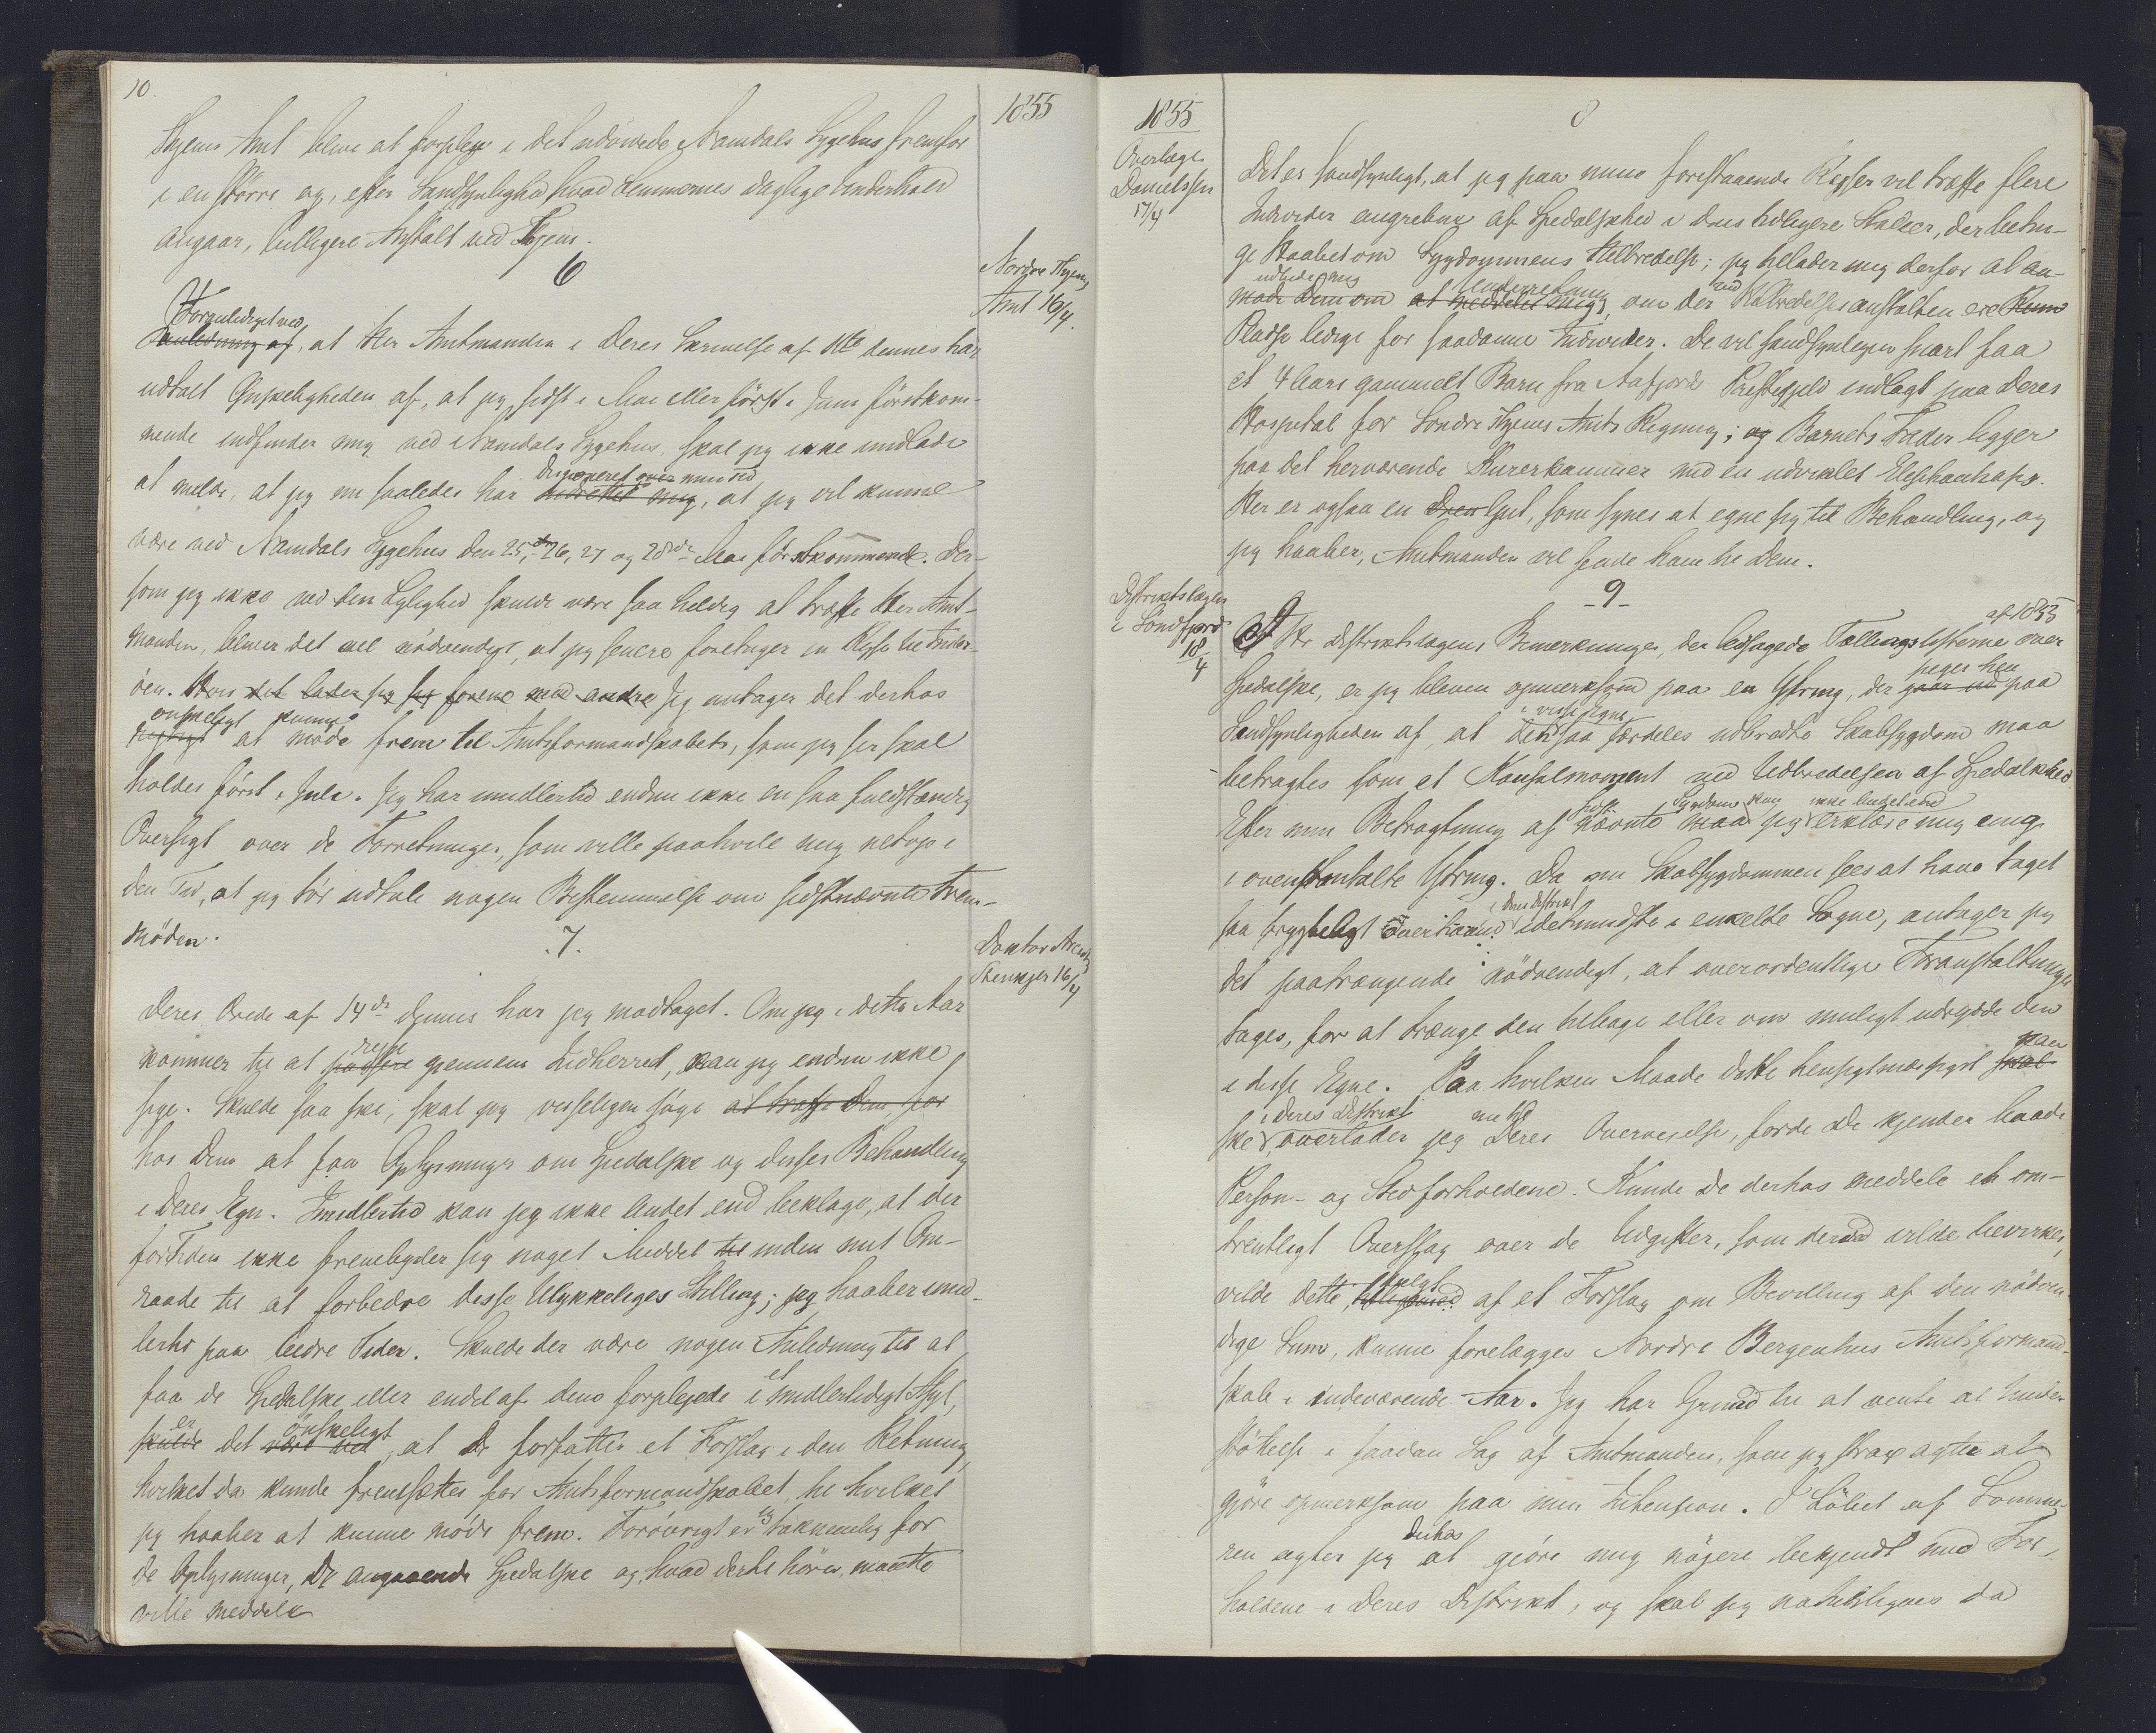 10.
1855
Thjems Amt blive at forpleje i det udvidede Namdals Sygehus fremfor
i en større og, efter Sandsynlighed hvad Lemmernes daglige Underhold
angaar, billigere Anstalt ved Thjem.
6
Nordre Thjems
Amt 16/4.
Foranlediget ved
Anledning af, at Herr Amtmanden i Deres Skrivelse af 11te dennes har
udtalt Ønskeligheden af, at jeg sidst i Mai eller først i Juni førstkom-
mende indfinder mig ved Namdals Sygehus, skal jeg ikke undlade
disponeret over min Tid
at melde, at jeg nu saaledes har indrettet mig, at jeg vil kunne
være ved Namdals Sygehus den 25de, 26, 27 og 28de Mai førstkommende. Der-
som jeg ikke ved den Lejlighed skulde være saa heldig at træffe Herr Amt-
manden, bliver det vel nødvendigt, at jeg senere foretager en Rejse til Inder-
øen. Hvis det lader sig forene med andre Jeg antager det derhos
ønskeligt kunne
at møde frem til Amtsformandskabets, som jeg ser skal
holdes først i Juli. Jeg har imidlertid endnu ikke en saa fuldstændig
Oversigt over de Forretninger, som ville paahvile mig netop i
den Tid, at jeg tør udtale nogen Bestemmelse om sidstnævnte Frem-
møden.
7.
Doktor
Stenkjer 16/4
Deres Brede af 14de dennes har jeg modtaget. Om jeg i dette Aar
rejse
kommer til at passere gjennem Lidherred, kan jeg endnu ikke
sige. Skulde saa ske, skal jeg visseligen søge at træffe Dem, for
hos Dem at faa Oplysninger om Spedalske og disses Behandling
i Deres Egn. Imidlertid kan jeg ikke Andet end beklage, at der
for Tiden ikke frembyder sig noget Middel til inden mit Om-
raade til at forbedre disse Ulykkeliges Stilling; jeg haaber imid-
lertid paa bedre Tider. Skulde der være nogen Anledning til at
et
faa de Spedalske eller endel af dem forplejede i midlertidigt Asyl,
er ønskeligt
skulde det være vel, at De forfatter et Forslag i den Retning,
hvilket da kunde fremsættes for Amtsformandskabet, til hvilket
jeg haaber at kunne møde frem. Forøvrigt er jeg taknemlig for
de Oplysninger, De angaaende Spedalske og, hvad dertil hører, maatte
ville meddele
1855
Overlæge
Danielssen
17/4
8
Det er sandsynligt, at jeg paa mine forestaaende Rejser vil træffe flere
Individer angrebne af Spedalskhed i dens tidligere Stadier, der betin-
ge Haabet om Sygdommens Helbredelse; jeg tillader mig derfor at an-
udbede mig Underretning ved
mode Dem om at meddele mig, om der Helbredelsesanstalten ere
Pladse ledige for saadanne Individer. De vil sandsynligen snart faa
et 4 Aars gammelt Barn fra Aafjords Prestegjeld indlagt paa Deres
Hospital for Søndre Thjems Amts Regning; og Barnets Fader ligger
paa det herværende Kurerkammer med en udviklet Elephantiasis.
Her er ogsaa en Dren Gut, som synes at egne sig til Behandling, og
jeg haaber, Amtmanden vil sende ham til Dem.
-9-
Distriktslægen
i Søndfjord
18/4
af 1855
Af Hr Distriktslægens Bemærkninger, der ledsagede Tællingslisterne over
peger hen
Spedalske, er jeg bleven opmerksom paa en Ytring, der gaar ud paa
i visse Egne
Sandsynligheden af, at den saa særdeles udbredte Skabsygdom maa
betragtes som et Kausalmoment ved Udbredelsen af Spedalskhed.
sidst Sygdom kan ikke Andet end
Efter min Betragtning af nævnte maa jeg erklære mig enig
i ovenomtalte Ytring. Da nu Skabsygdommen sees at have taget
i Deres Distrikt
saa frygteligt Overhaand idetmindste i enkelte Sogne, antager jeg
det paatrængende nødvendigt, at overordentlige Foranstaltninger
tages, for at trænge den tilbage eller om muligt udrydde den
kan
i disse Egne. Paa hvilken Maade dette hensigtsmæssigst skal
i Deres Distrikt
ske, overlader jeg Deres Overvejelse, fordi De kjender baade
Person- og Stedforholdene. Kunde De derhos meddele et om-
trentligt Overslag over de Udgifter, som derved vilde bevirkes,
fulgt
vilde dette, af et Forslag om Bevilling af den nødven-
dige Sum, kunne forelægges Nordre Bergenhus Amtsformand-
skab i indeværende Aar. Jeg har Grund til at vente al Under-
støttelse i saadan Sag af Amtmanden, som jeg strax agter at
gjøre opmerksom paa min Intension. I Løbet af Somme-
derhos
ren agter jeg at gjøre mig nøjere bekjendt med For-
holdene i Deres Distrikt, og skal jeg naturligvis da